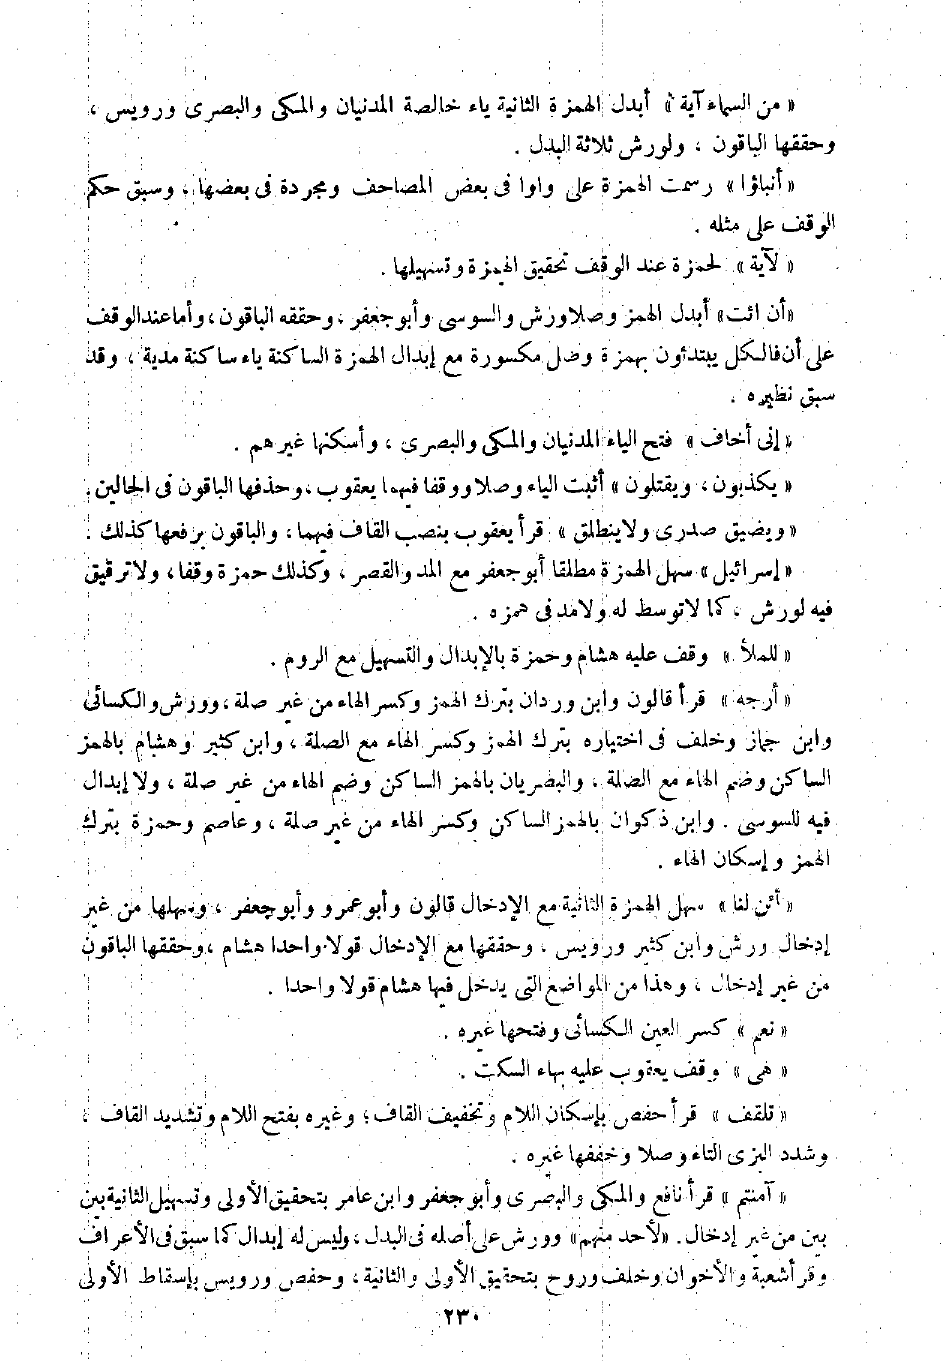 « من السماء آية » أبدل الهمزة الثانية ياء خالصة المدنيان والمكى والبصرى ورويس ،
وحققها الباقون ، ولورش ثلاثة البدل .
« أنباؤا » رسمت الهمزة على واوا فى بعض المصاحف ومجردة فى بعضها ، وسبق حكم
الوقف على مثله .
« لآية » لحمزة عند الوقف تحقيق الهمزة وتسهيلها .
« أن ائت » أبدل الهمز وصلا ورش والسوسى وأبو جعفر ، وحققه الباقون ، وأما عند الوقف
على أن فالكل يبتدئون بهمزة وصل مكسورة مع إبدال الهمزة الساكنة ياء ساكنة مدية ، وقد
سبق نظيره .
« إنى أخاف » فتح الياء المدنيان والمكى والبصرى ، وأسكنها غيرهم .
« يكذبون ، ويقتلون » أثبت الياء وصلا ووقفا فيهما يعقوب ، وحذفها الباقون فى الحالين .
« ويضيق صدرى ولا ينطلق » قرأ يعقوب بنصب القاف فيهما ، والباقون برفعها كذلك .
« إسرائيل » سهل الهمزة مطلقا أبو جعفر مع المد والقصر ، وكذلك حمزة وقفا ، ولا ترقيق
فيه لورش ، كما لا توسط له ولا مد فى همزه .
« للملأ » وقف عليه هشام وحمزة بالإبدال والتسهيل مع الروم .
« أرجه » قرأ قالون وابن وردان بترك الهمز وكسر الهاء من غير صلة ، وورش والكسائى
وابن جماز وخلف فى اختياره بترك الهمز وكسر الهاء مع الصلة ، وابن كثير وهشام بالهمز
الساكن وضم الهاء مع الصلة ، والبصريان بالهمز الساكن وضم الهاء من غير صلة ، ولا إبدال
فيه للسوسى . وابن ذكوان بالهمز الساكن وكسر الهاء من غير صلة ، وعاصم وحمزة بترك
الهمز وإسكان الهاء .
« أئن لنا » سهل الهمزة الثانية مع الإدخال قالون وأبو عمرو وأبو جعفر ، وسهلها من غير
إدخال ورش وابن كثير ورويس ، وحققها مع الإدخال قولا واحدا هشام ، وحققها الباقون
من غير إدخال ، وهذا من المواضع التى يدخل فيها هشام قولا واحدا .
« نعم » كسر العين الكسائى وفتحها غيره .
« هى » وقف يعقوب عليه بهاء السكت .
« تلقف » قرأ حفص بإسكان اللام وتخفيف القاف ؛ وغيره بفتح اللام وتشديد القاف ؛
وشدد البزى التاء وصلا وخففها غيره .
« آمنتم » قرأ نافع والمكى والبصرى وأبو جعفر وابن عامر بتحقيق الأولى وتسهيل الثانية بين
بين من غير إدخال . « لأحد منهم » وورش على أصله فى البدل ، وليس له إبدال كما سبق فى الأعراف
وقرأ شعبة والأخوان وخلف وروح بتحقيق الأولى والثانية ، وحفص ورويس بإسقاط الأولى
٢٣٠